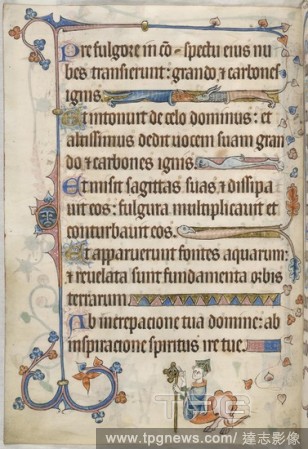 Pre fulgore in cō - spectu eius nu
bes transierunt: grando & carbones
ignis.
Et intonuit de celo dominus: et
altissimus dedit uocem suam gran
do & carbones ignis.
Et misit sagittas suas & dissipa
uit eos: fulgura multiplicauit et
conturbauit eos.
Et apparuerunt fontes aquarum:
& reuelata sunt fundamenta orbis
terrarum.
Ab increpacione tua domine: ab
inspiracione spiritus ire tue.
TPG
www.tpgnews.com/ 達志影像